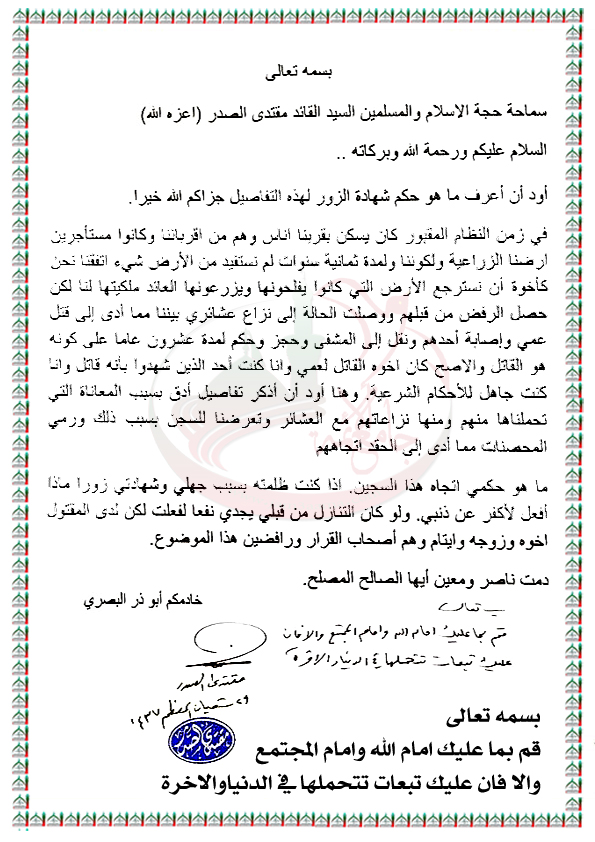 بسمه تعالى
سماحة حجة الاسلام والمسلمين السيد القائد مقتدى الصدر (اعزه الله)
السلام عليكم ورحمة الله وبركاته ..
أود أن أعرف ما هو حكم شهادة الزور لهذه التفاصيل جزاكم الله خيرا.
في زمن النظام المقبور كان يسكن بقربنا اناس وهم من اقربائنا وكانوا مستأجرين
ارضنا الزراعية ولكوننا ولمدة ثمانية سنوات لم نستفيد من الأرض شيء اتفقنا نحن
كأخوة أن نسترجع الأرض التي كانوا يفلحونها ويزرعونها العائد ملكيتها لنا لكن
حصل الرفض من قبلهم ووصلت الحالة إلى نزاع عشائري بيننا مما أدى إلى قتل
عمي وإصابة أحدهم ونقل إلى المشفى وحجز وحكم لمدة عشرون عاما على كونه
هو القاتل والاصح كان اخوه القاتل لعمي وانا كنت أحد الذين شهدوا بأنه قاتل وانا
كنت جاهل للأحكام الشرعية. وهنا أود أن أذكر تفاصيل أدق بسبب المعاناة التي
تحملناها منهم ومنها نزاعاتهم مع العشائر وتعرضنا للسجن بسبب ذلك ورمي
المحصنات مما أدى إلى الحقد اتجاههم
ما هو حكمي اتجاه هذا السجين. اذا كنت ظلمته بسبب جهلي وشهادتي زورا ماذا
أفعل لأكفر عن ذنبي. ولو كان التنازل من قبلي يجدي نفعا لفعلت لكن لدى المقتول
اخوه وزوجه وايتام وهم أصحاب القرار ورافضين هذا الموضوع.
دمت ناصر ومعين أيها الصالح المصلح.
خادمكم أبو ذر البصري
بسمه تعالى
قم بما عليك امام الله وامام المجتمع والا فان
عليك تبعات تتحملها في الدنيا والاخرة
مقتدى الصدر
٢٩ شعبان المعظم ١٤٣٧
مقتدى الصدر
بسمه تعالى
قم بما عليك امام الله وامام المجتمع
والا فان عليك تبعات تتحملها في الدنياوالاخرة